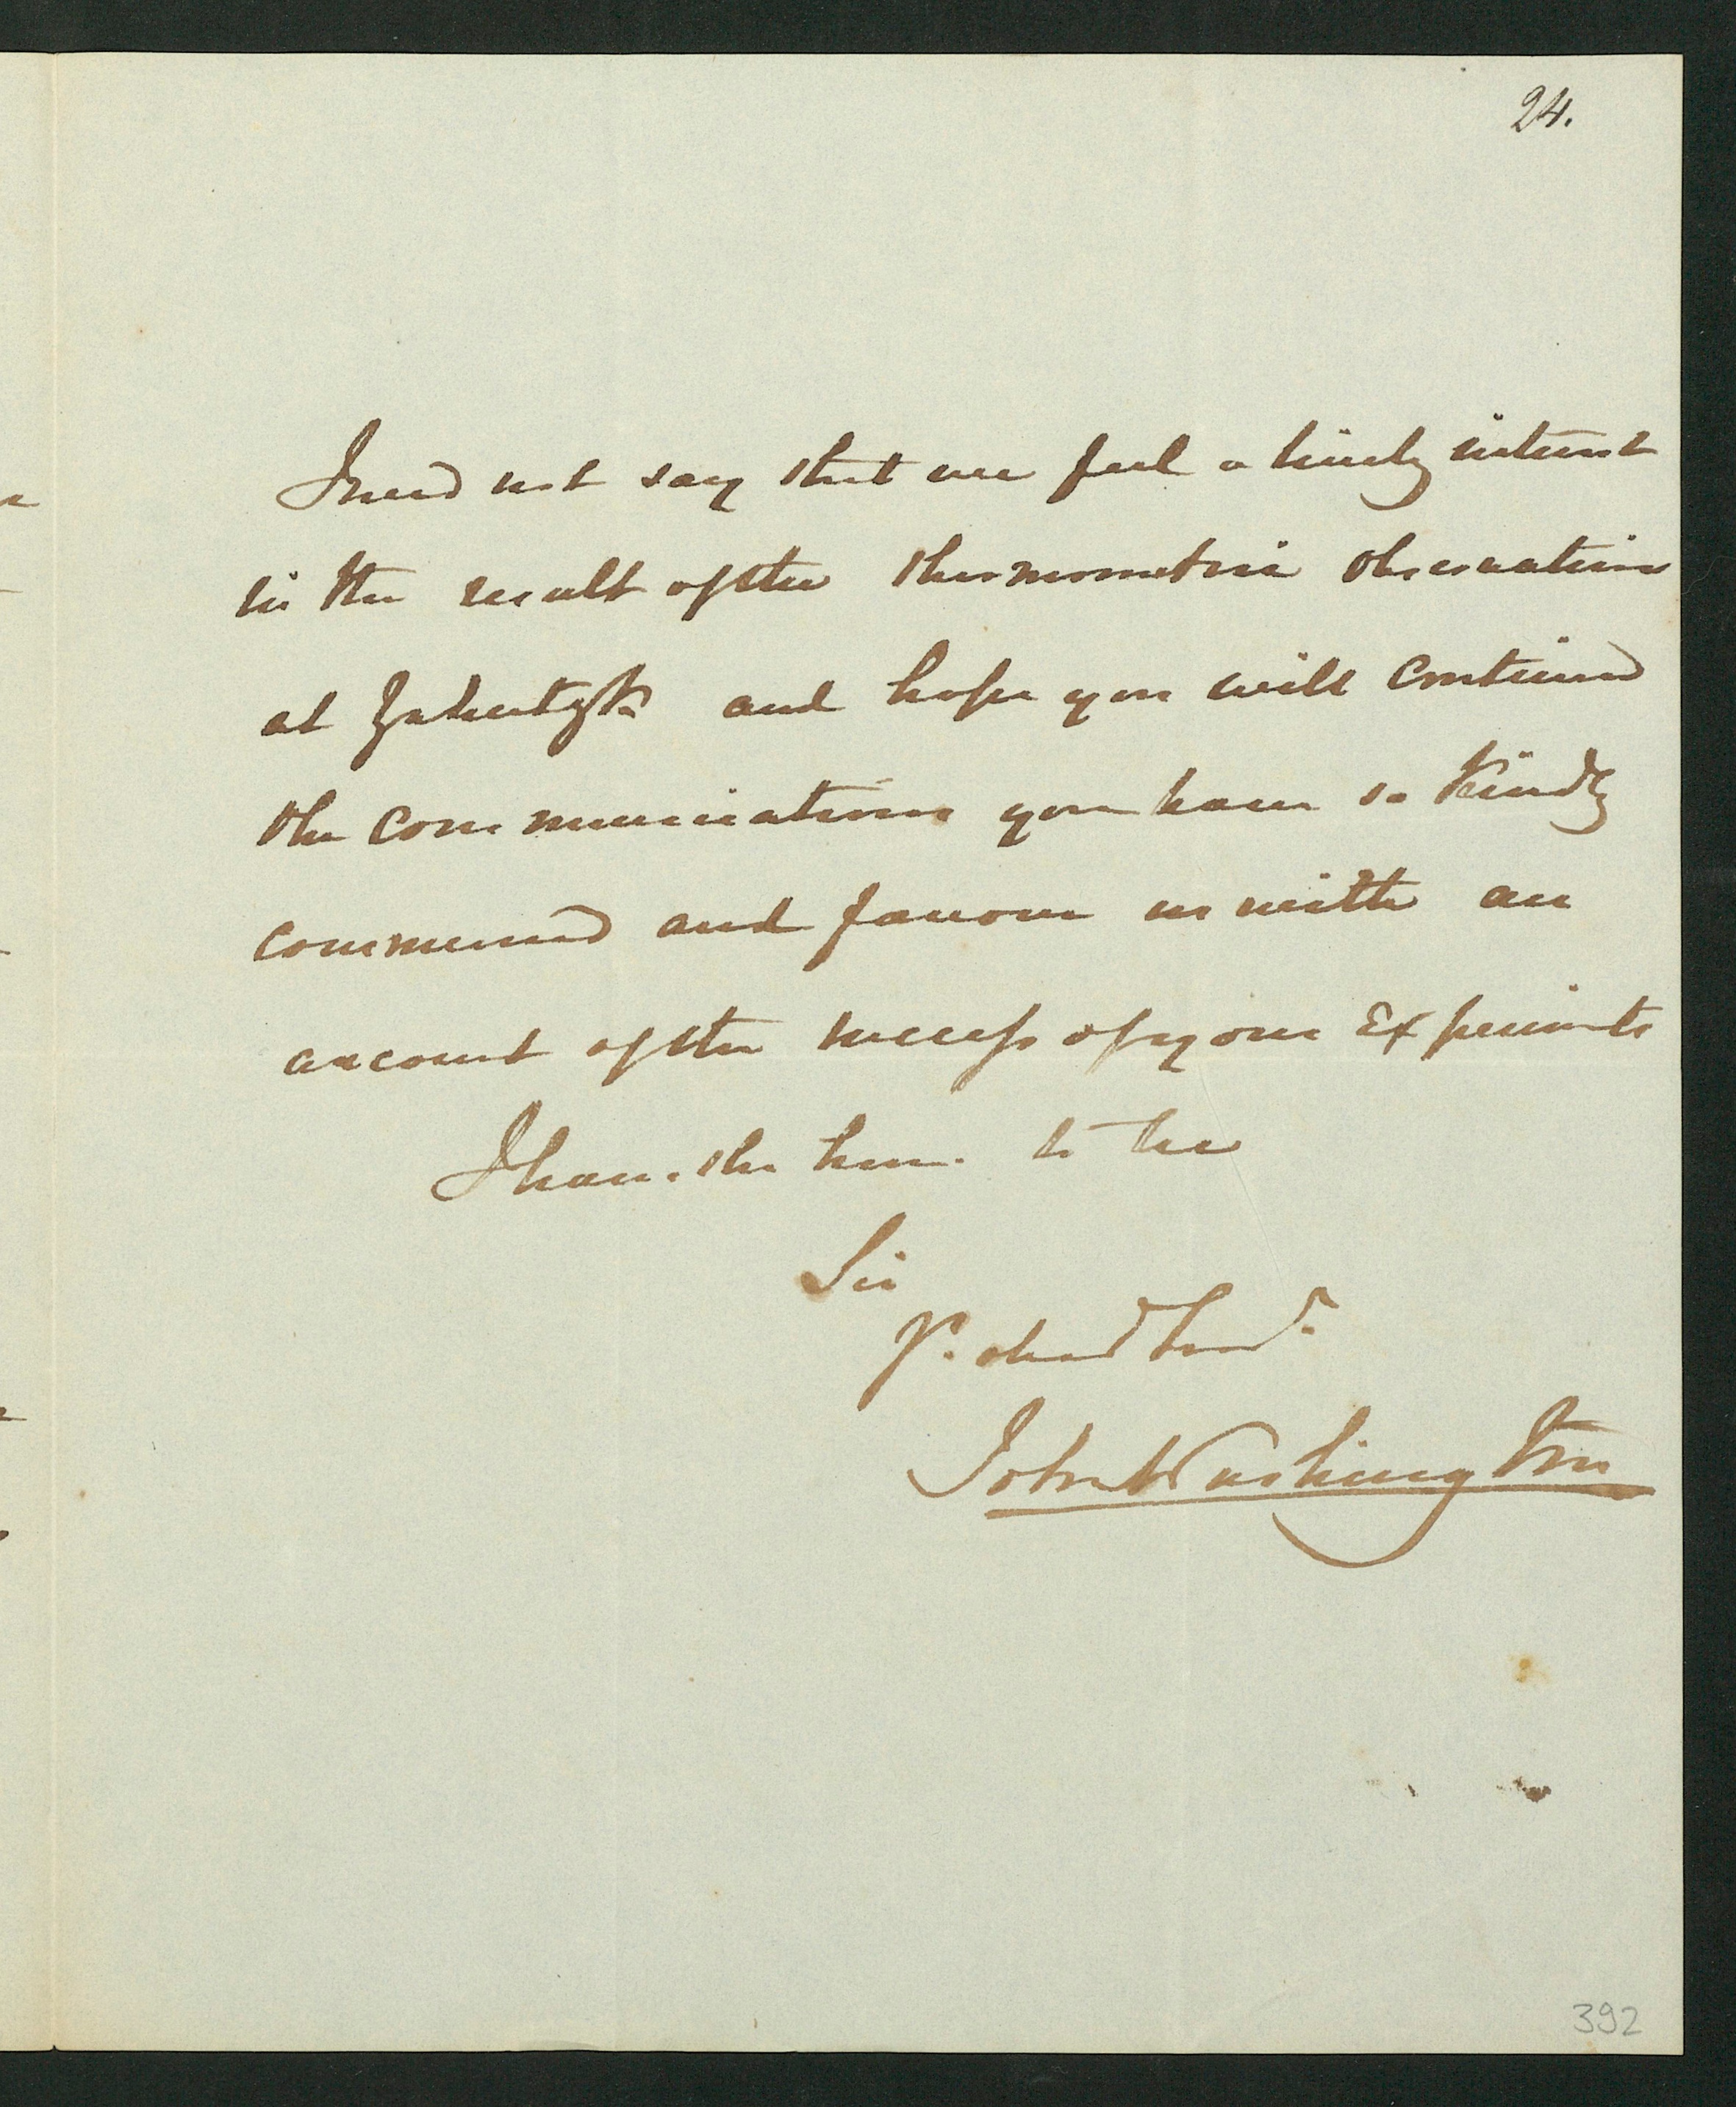 24.
I need not say that we feel a lively interest
in the result of the thermometric observations
at Yakutzk and hope you will continue
the communications you have so kindly
commenced and favour us with an
account of the success of your Experiments
I have the hon. to be
Sir
Yr. obed Serv.t
John Washington
392